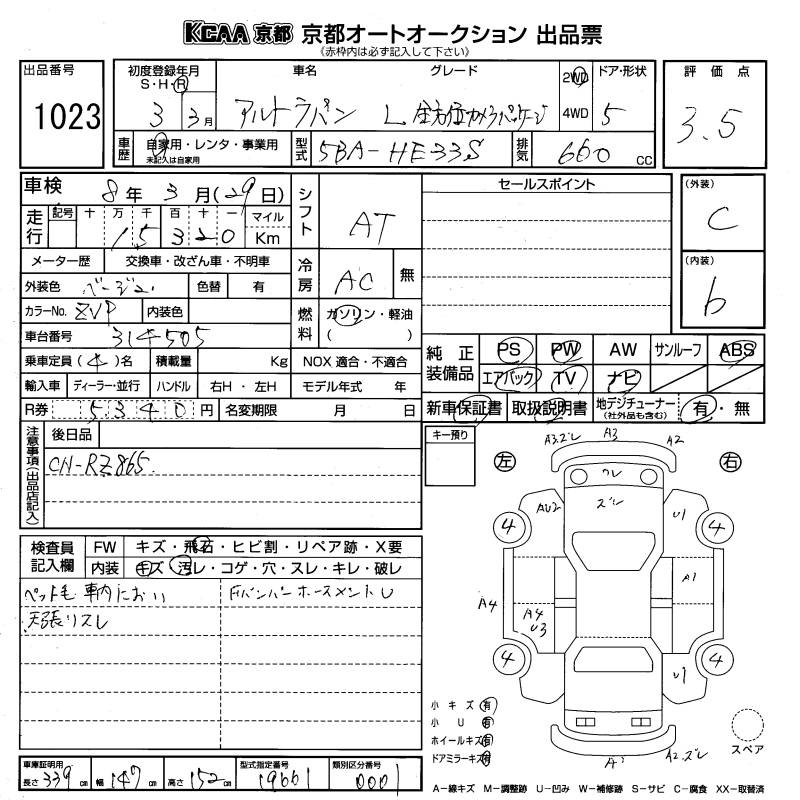 KCAA 京都 京都オートオークション 出品票
(赤枠内は必ず記入して下さい)
出品番号 1023
初度登録年月 S・H・R 3 3月
車名 アルトラパン
グレード L 全方位カメラパッケージ
2WD 4WD
ドア・形状 5
評価点 3.5
車歴 自家用・レンタ・事業用 未記入は自家用
型式 5BA-HE33S
排気 660 CC
車検 8年 3月(29日)
走行 記号 十 万 千 百 十 一 マイル Km
15320
メーター歴 交換車・改ざん車・不明車
外装色 ベージュ 色替 有
カラーNo. ZVP 内装色
車台番号 314505
乗車定員(4)名 積載量 Kg
輸入車 ディーラー・並行 ハンドル 右H・左H
R券 5340円 名変期限 月 日
シフト AT
冷房 AC 無
燃料 ガソリン・軽油 ( )
NOX 適合・不適合
モデル年式 年
セールスポイント
(外装) C
(内装) b
純正装備品 PS PW AW サンルーフ ABS
エアバック TV ナビ
新車保証書 取扱説明書 地デジチューナー (社外品も含む) 有・無
注意事項(出品店記入) 後日品
CN-RZ865
キー預り
検査員記入欄 FW キズ・飛石・ヒビ割・リペア跡・X要
内装 キズ・汚レ・コゲ・穴・スレ・キレ・破レ
ペット毛 車内におい
天張リスレ
Fバンパーホースメント U
左 右
A3.ズレ A3 A2
ワレ
ズレ
AU2 U1
4 4
A1
A4 A4 U3
4 4
U1
A2.ズレ
小キズ 有
小U 有
ホイールキズ 有
ドアミラーキズ 有
スペア
車庫証明用 長さ 339cm 幅 147cm 高さ 152cm
型式指定番号 19661
類別区分番号 0001
A-線キズ M-調整跡 U-凹み W-補修跡 S-サビ C-腐食 XX-取替済